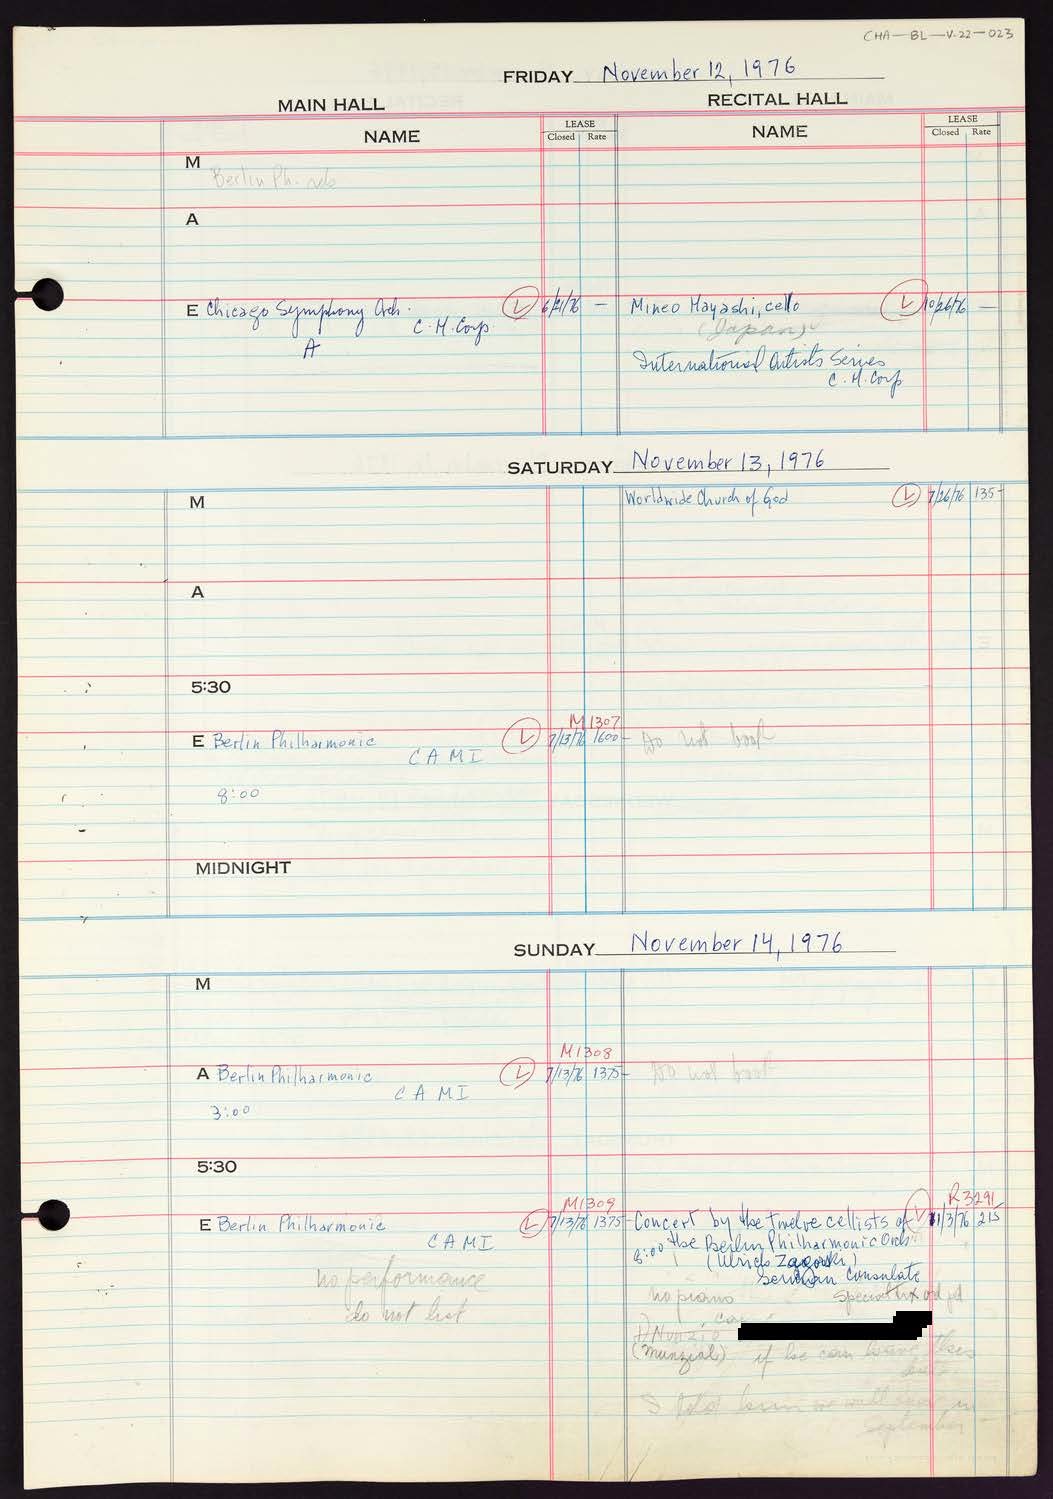 CHA-BL-V.22-023
FRIDAY November 12, 1976
MAIN HALL
RECITAL HALL
NAME
LEASE
Closed Rate
NAME
LEASE
Closed Rate
M
Berlin Ph.
A
E Chicago Symphony Orch. L 6/21/76 —
C.H. Corp
A
Mineo Hayashi, cello L 10/26/76 —
(Japan)
International Artists Series
C.H. Corp
SATURDAY November 13, 1976
M
Worldwide Church of God L 7/26/76 135-
A
5:30
M1307
E Berlin Philharmonic L 7/13/76 1600-
CAMI
8:00
Do not book
MIDNIGHT
SUNDAY November 14, 1976
M
M1308
A Berlin Philharmonic L 7/13/76 1375-
CAMI
3:00
Do not book
5:30
M1309
E Berlin Philharmonic L 7/13/76 1375-
CAMI
no performance
do not list
R3291
Concert by the twelve cellists of L 11/3/76 215
8:00 the Berlin Philharmonic Orch
(Ulrich
German Consulate
no piano
(Munzial) if he can have
I told him we will know in
September